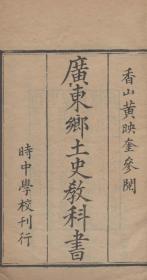 香山黃映奎參閱
廣東鄉土史教科書
時中學校刊行